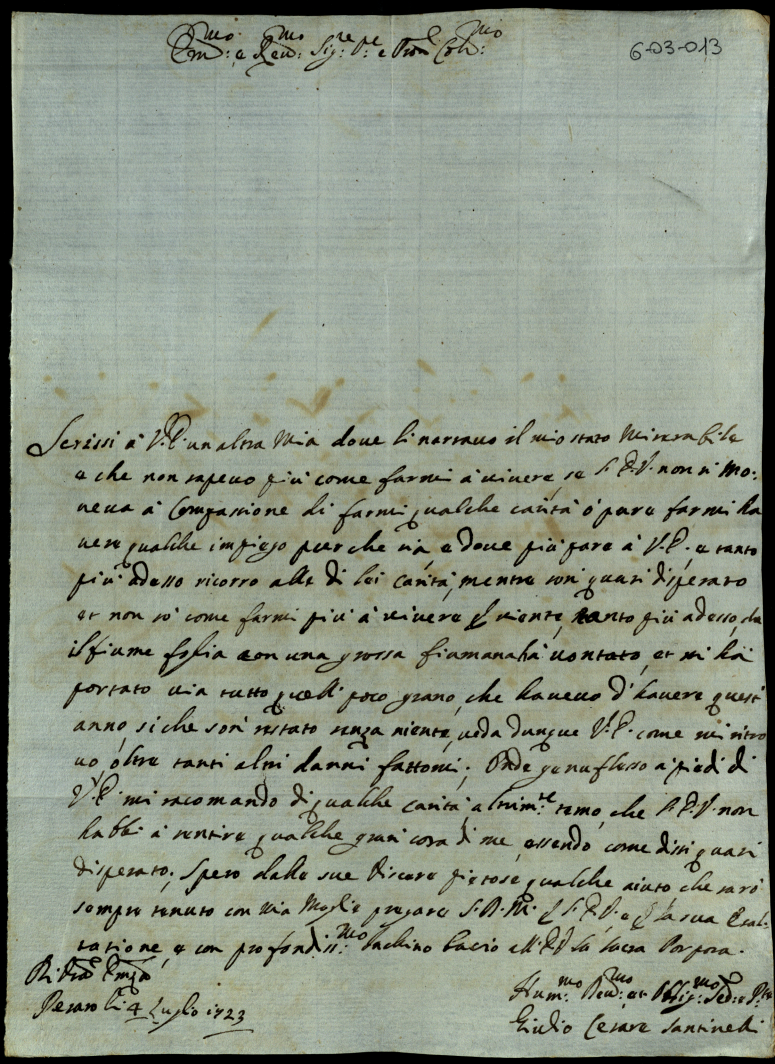 Em:mo e Reu:mo Sig:re P:re e Pron Col:mo
6-03-013
Scrissi à V.E. un altra mia doue li narrauo il mio stato miserabile
e che non sapeuo più come farmi à uiuere, se l'E.V. non si mo:
ueua à Compassione di farmi qualche carità ò pure farmi ha
uere qualche impiego purche sia e doue più pare à V.E. e tanto
più adesso ricorro alla di lei carità, mentre son quasi disperato
et non sò come farmi più à uiuere niente, tanto più adesso, che
il fiume foglia con una grossa fiumana hà uontato, et mi hà
portato uia tutto quell poco grano, che haueuo d'hauere quest
anno, si che son restato senza niente, ueda dunque V.E. come mi ritro
uo, oltre tanti altri danni fattomi; Onde genuflesso a piedi di
V.E. mi racomando di qualche carità, altrim:te temo, che l'E.V. non
habbi à sentire qualche gran cosa di me, essendo come dissi quasi
disperato. Spero dalle sue viscere pietose qualche aiuto che sarò
sempre tenuto con mia Moglie pregare S.D.M. p l'E.V. e p la sua Esal-
tatione, e con profondiss:mo Inchino bacio all'E.V. la sacra Porpora.
Di Vra Emza
Pesaro li 4 Luglio 1723
Hum:mo Deu:mo et Oblig:mo Sed: e
Giulio Cesare Santinelli